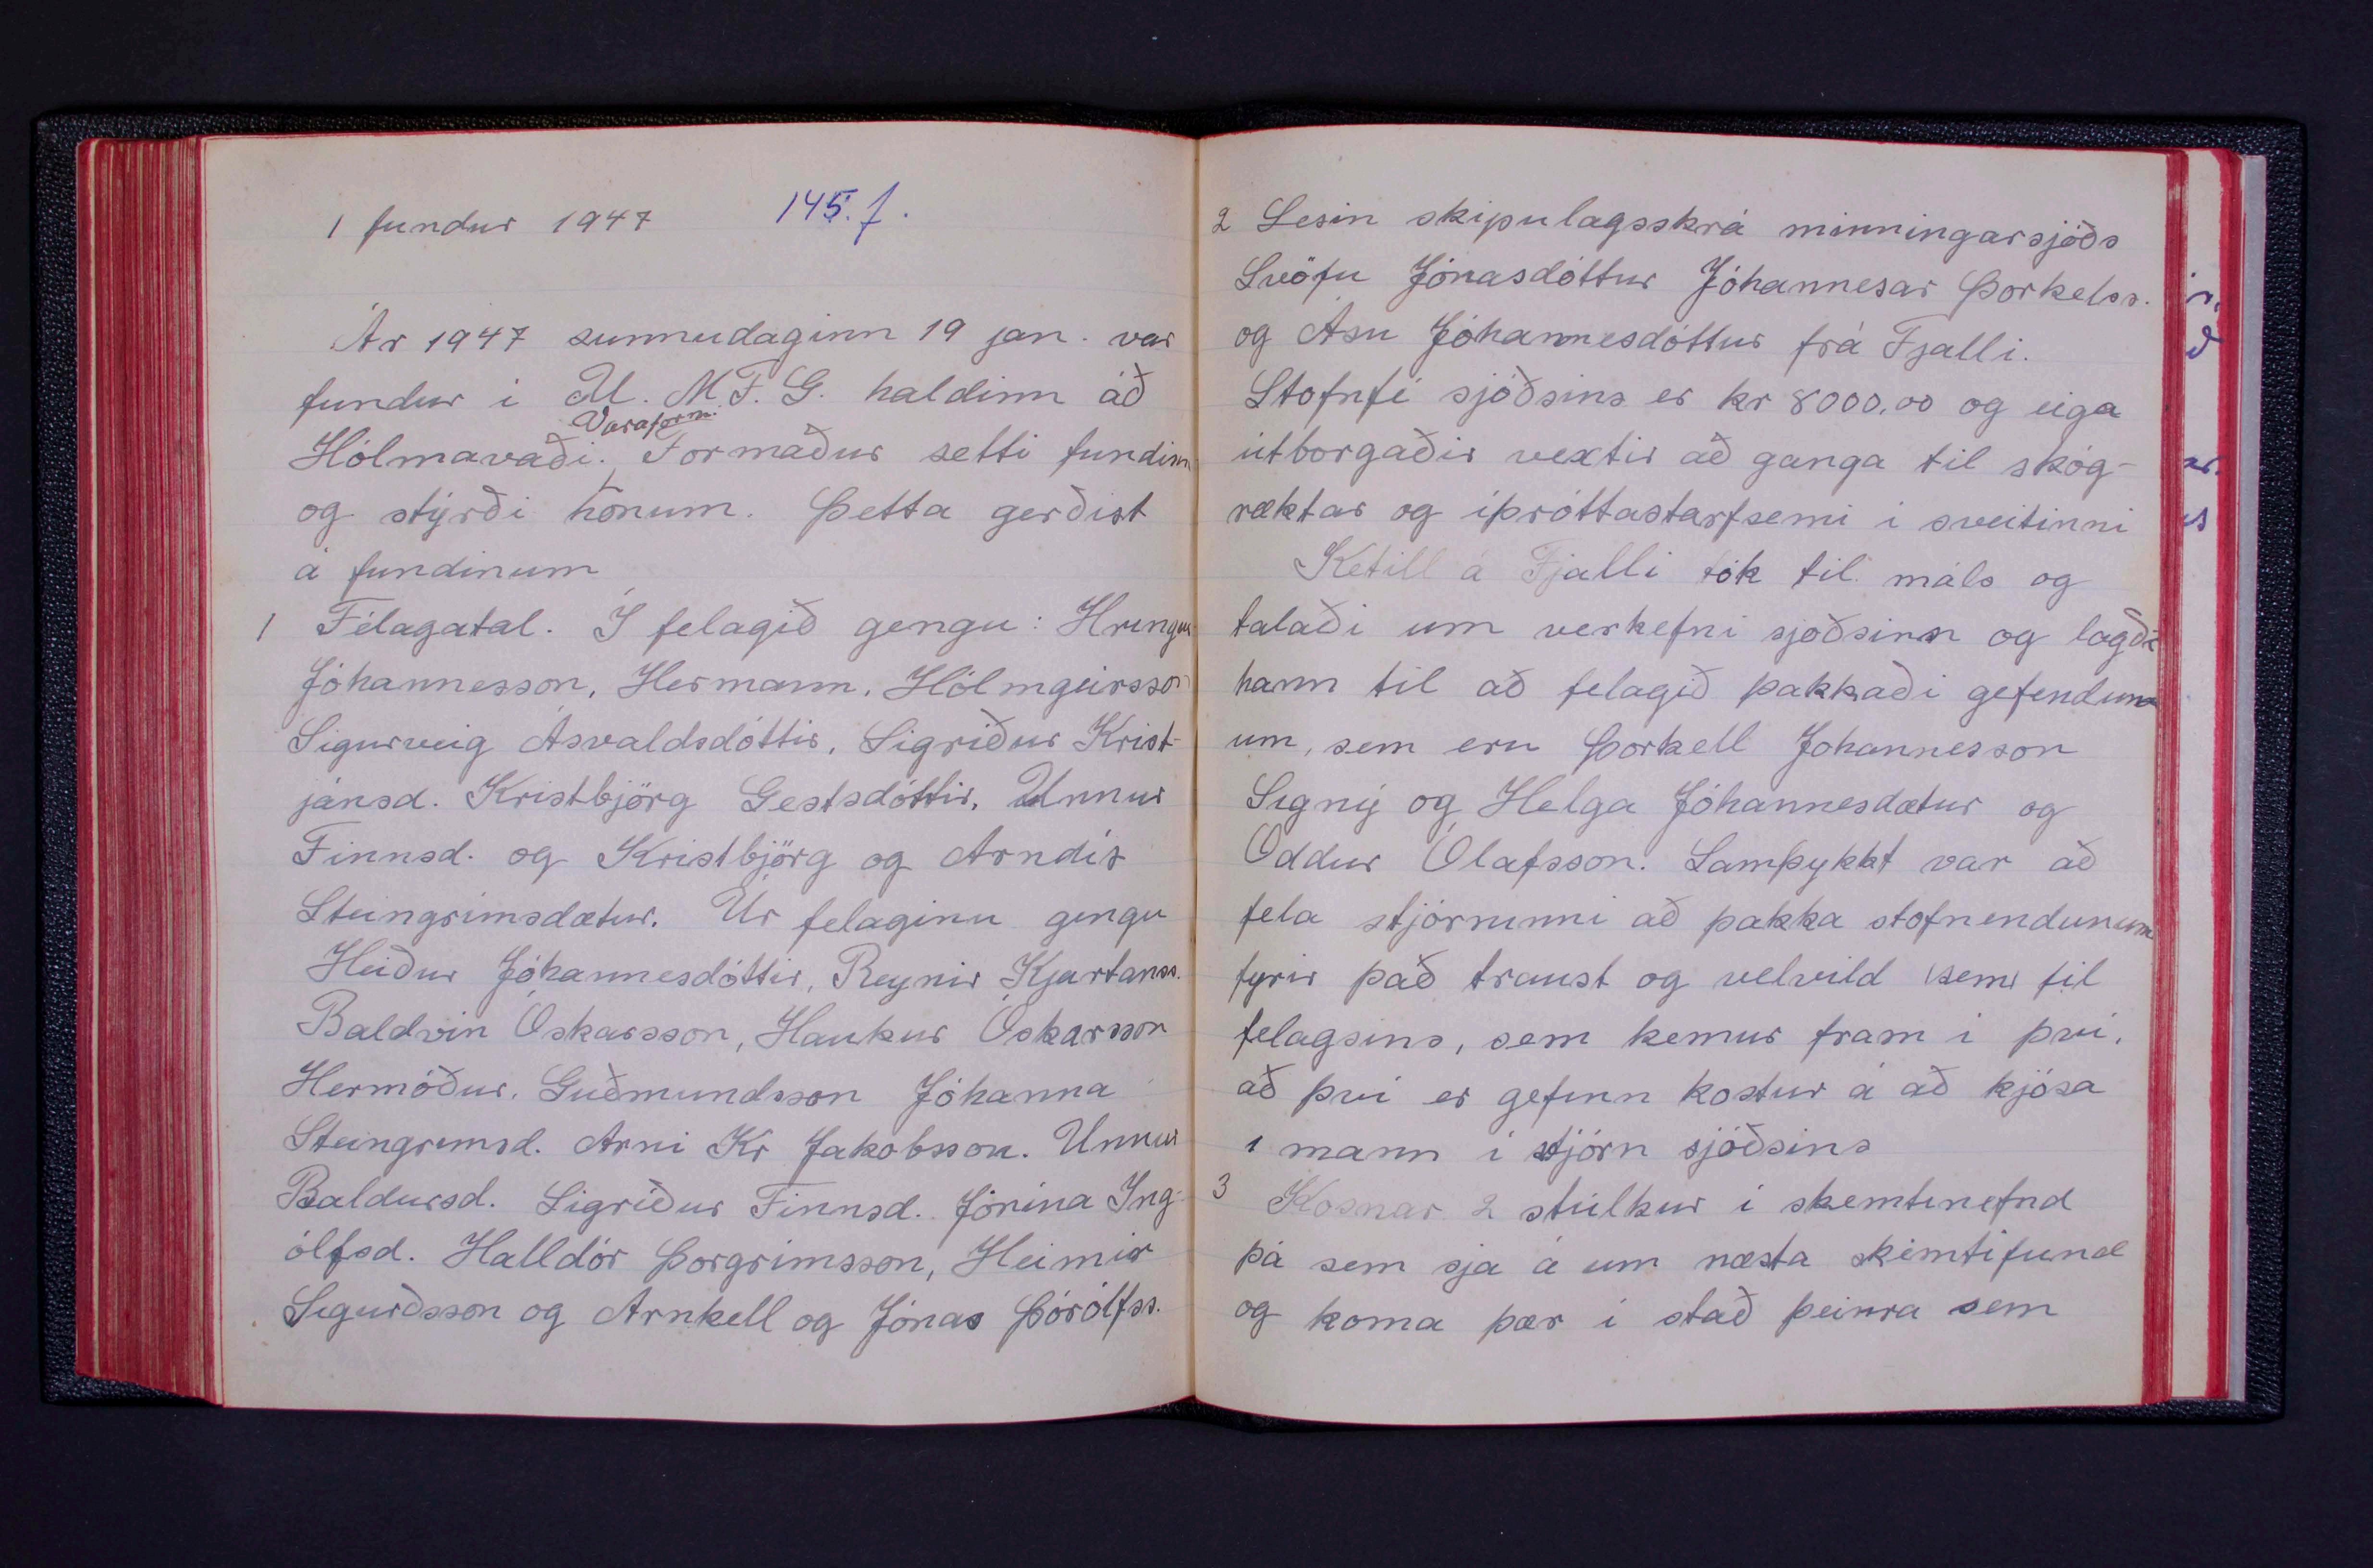 1 fundur 1947 145. f.
Ár 1947 sunnudaginn 19 jan. var
fundur i U. M. F. G. haldinn áð
Varaform.
Hólmavaði. Formaður setti fundinn
og stýrði honum. Þetta gerðist
á fundinum
1 Félagatal. Í felagið gengu: Hringur
Jóhannesson, Hermann. Hólmgeirsson
Sigurveig Ásvaldsdóttir, Sigriður Krist-
jánsd. Kristbjörg Gestsdóttir, Unnur
Finnsd. og Kristbjörg og Arndís
Steingrimsdætur. Úr felaginu gengu
Heiður Jóhannesdóttir, Reynir Kjartanss.
Baldvin Óskarsson, Haukur Óskarsson
Hermóður. Guðmundsson Jóhanna
Steingrimsd. Arni Kr Jakobsson. Unnur
Baldursd. Sigríður Finnsd. Jónína Ing-
ólfsd. Halldór Þorgrímsson, Heimir
Sigurðsson og Arnkell og Jónas Þórólfss.
2 Lesin skipulagsskrá minningarsjóðs
Svöfu Jónasdóttur Jóhannesar Þorkelss.
og Ásu Jóhannesdóttur frá Fjalli.
Stofnfé sjóðsins er kr 8000,00 og eiga
útborgaðir vextir að ganga til skóg-
ræktar og íþróttastarfsemi i sveitinni
Ketill á Fjalli tók til máls og
talaði um verkefni sjóðsins og lagði
hann til að felagið þakkaði gefendum
um, sem eru Þorkell Johannesson
Signý og Helga Jóhannesdætur og
Oddur Ólafsson. Samþykkt var að
fela stjórninni að þakka stofnendunum
fyrir það traust og velvild (sem) til
felagsins, sem kemur fram i því,
að því er gefinn kostur á að kjósa
1 mann í stjórn sjóðsins
3 Kosnar 2 stúlkur í skemtinefnd
þá sem sjá á um næsta skemtifund
og koma þær í stað þeirra sem